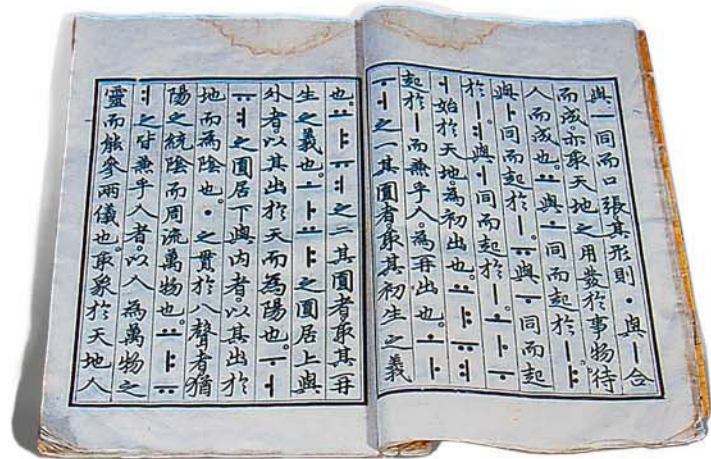 與ㅡ同而口張其形則ㆍ與ㅣ合
而成亦取天地之用發於事物待
人而成也。ㅛ與ㅗ同而起於ㅣ。ㅑ
與ㅏ同而起於ㅣ。ㅠ與ㅜ同而起
於ㅣ。ㅕ與ㅓ同而起於ㅣ。ㅗㅏㅜ
ㅓ始於天地。為初出也。ㅛㅑㅠㅕ
起於ㅣ而兼乎人。為再出也。ㅗㅏ
ㅜㅓ之一其圓者。取其初生之義
也。ㅛㅑㅠㅕ之二其圓者。取其再
生之義也。ㅗㅏㅛㅑ之圓居上與
外者。以其出於天而為陽也。ㅜㅓ
ㅠㅕ之圓居下與内者。以其出於
地而為陰也。ㆍ之貫於八聲者。猶
陽之統陰而周流萬物也。ㅛㅑㅠ
ㅕ之皆兼乎人者。以人為萬物之
靈而能參兩儀也。取象於天地人